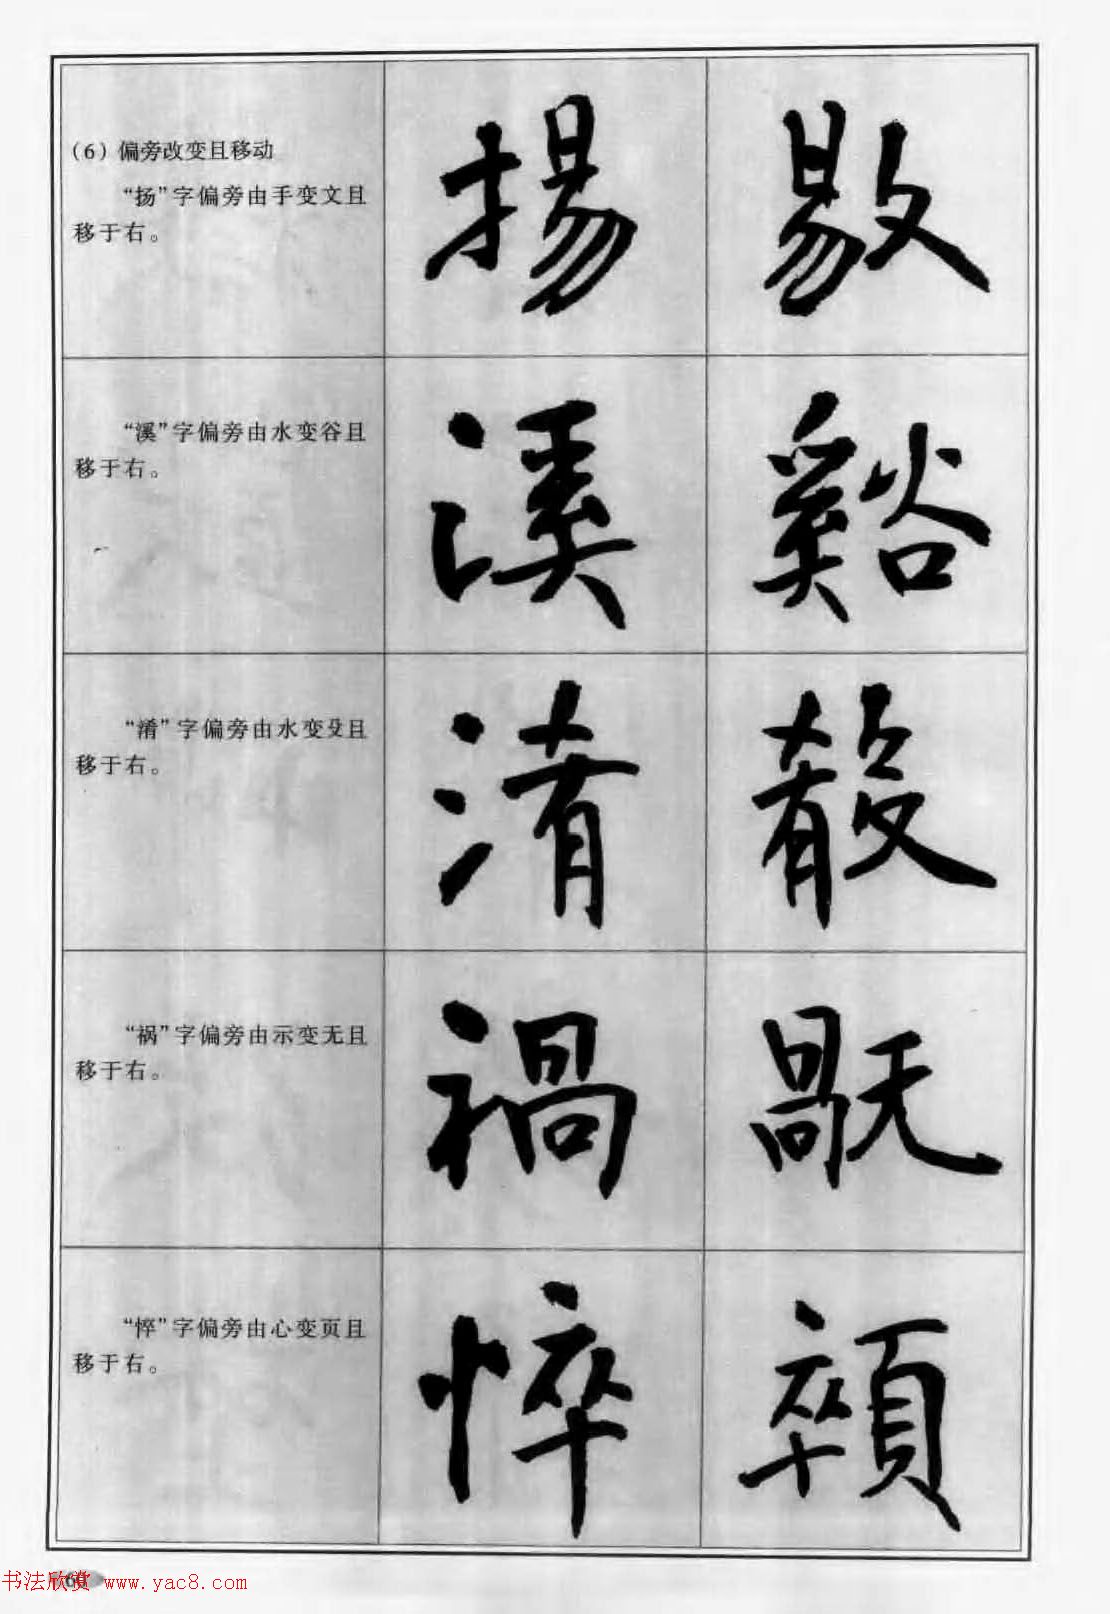 (6) 偏旁改变且移动
“扬”字偏旁由手变文且
移于右。
揚 敭
“溪”字偏旁由水变谷且
移于右。
溪 谿
“淆”字偏旁由水变殳且
移于右。
淆 殽
“祸”字偏旁由示变无且
移于右。
禍
“悴”字偏旁由心变页且
移于右。
悴 顇
60
书法欣赏 www.yac8.com